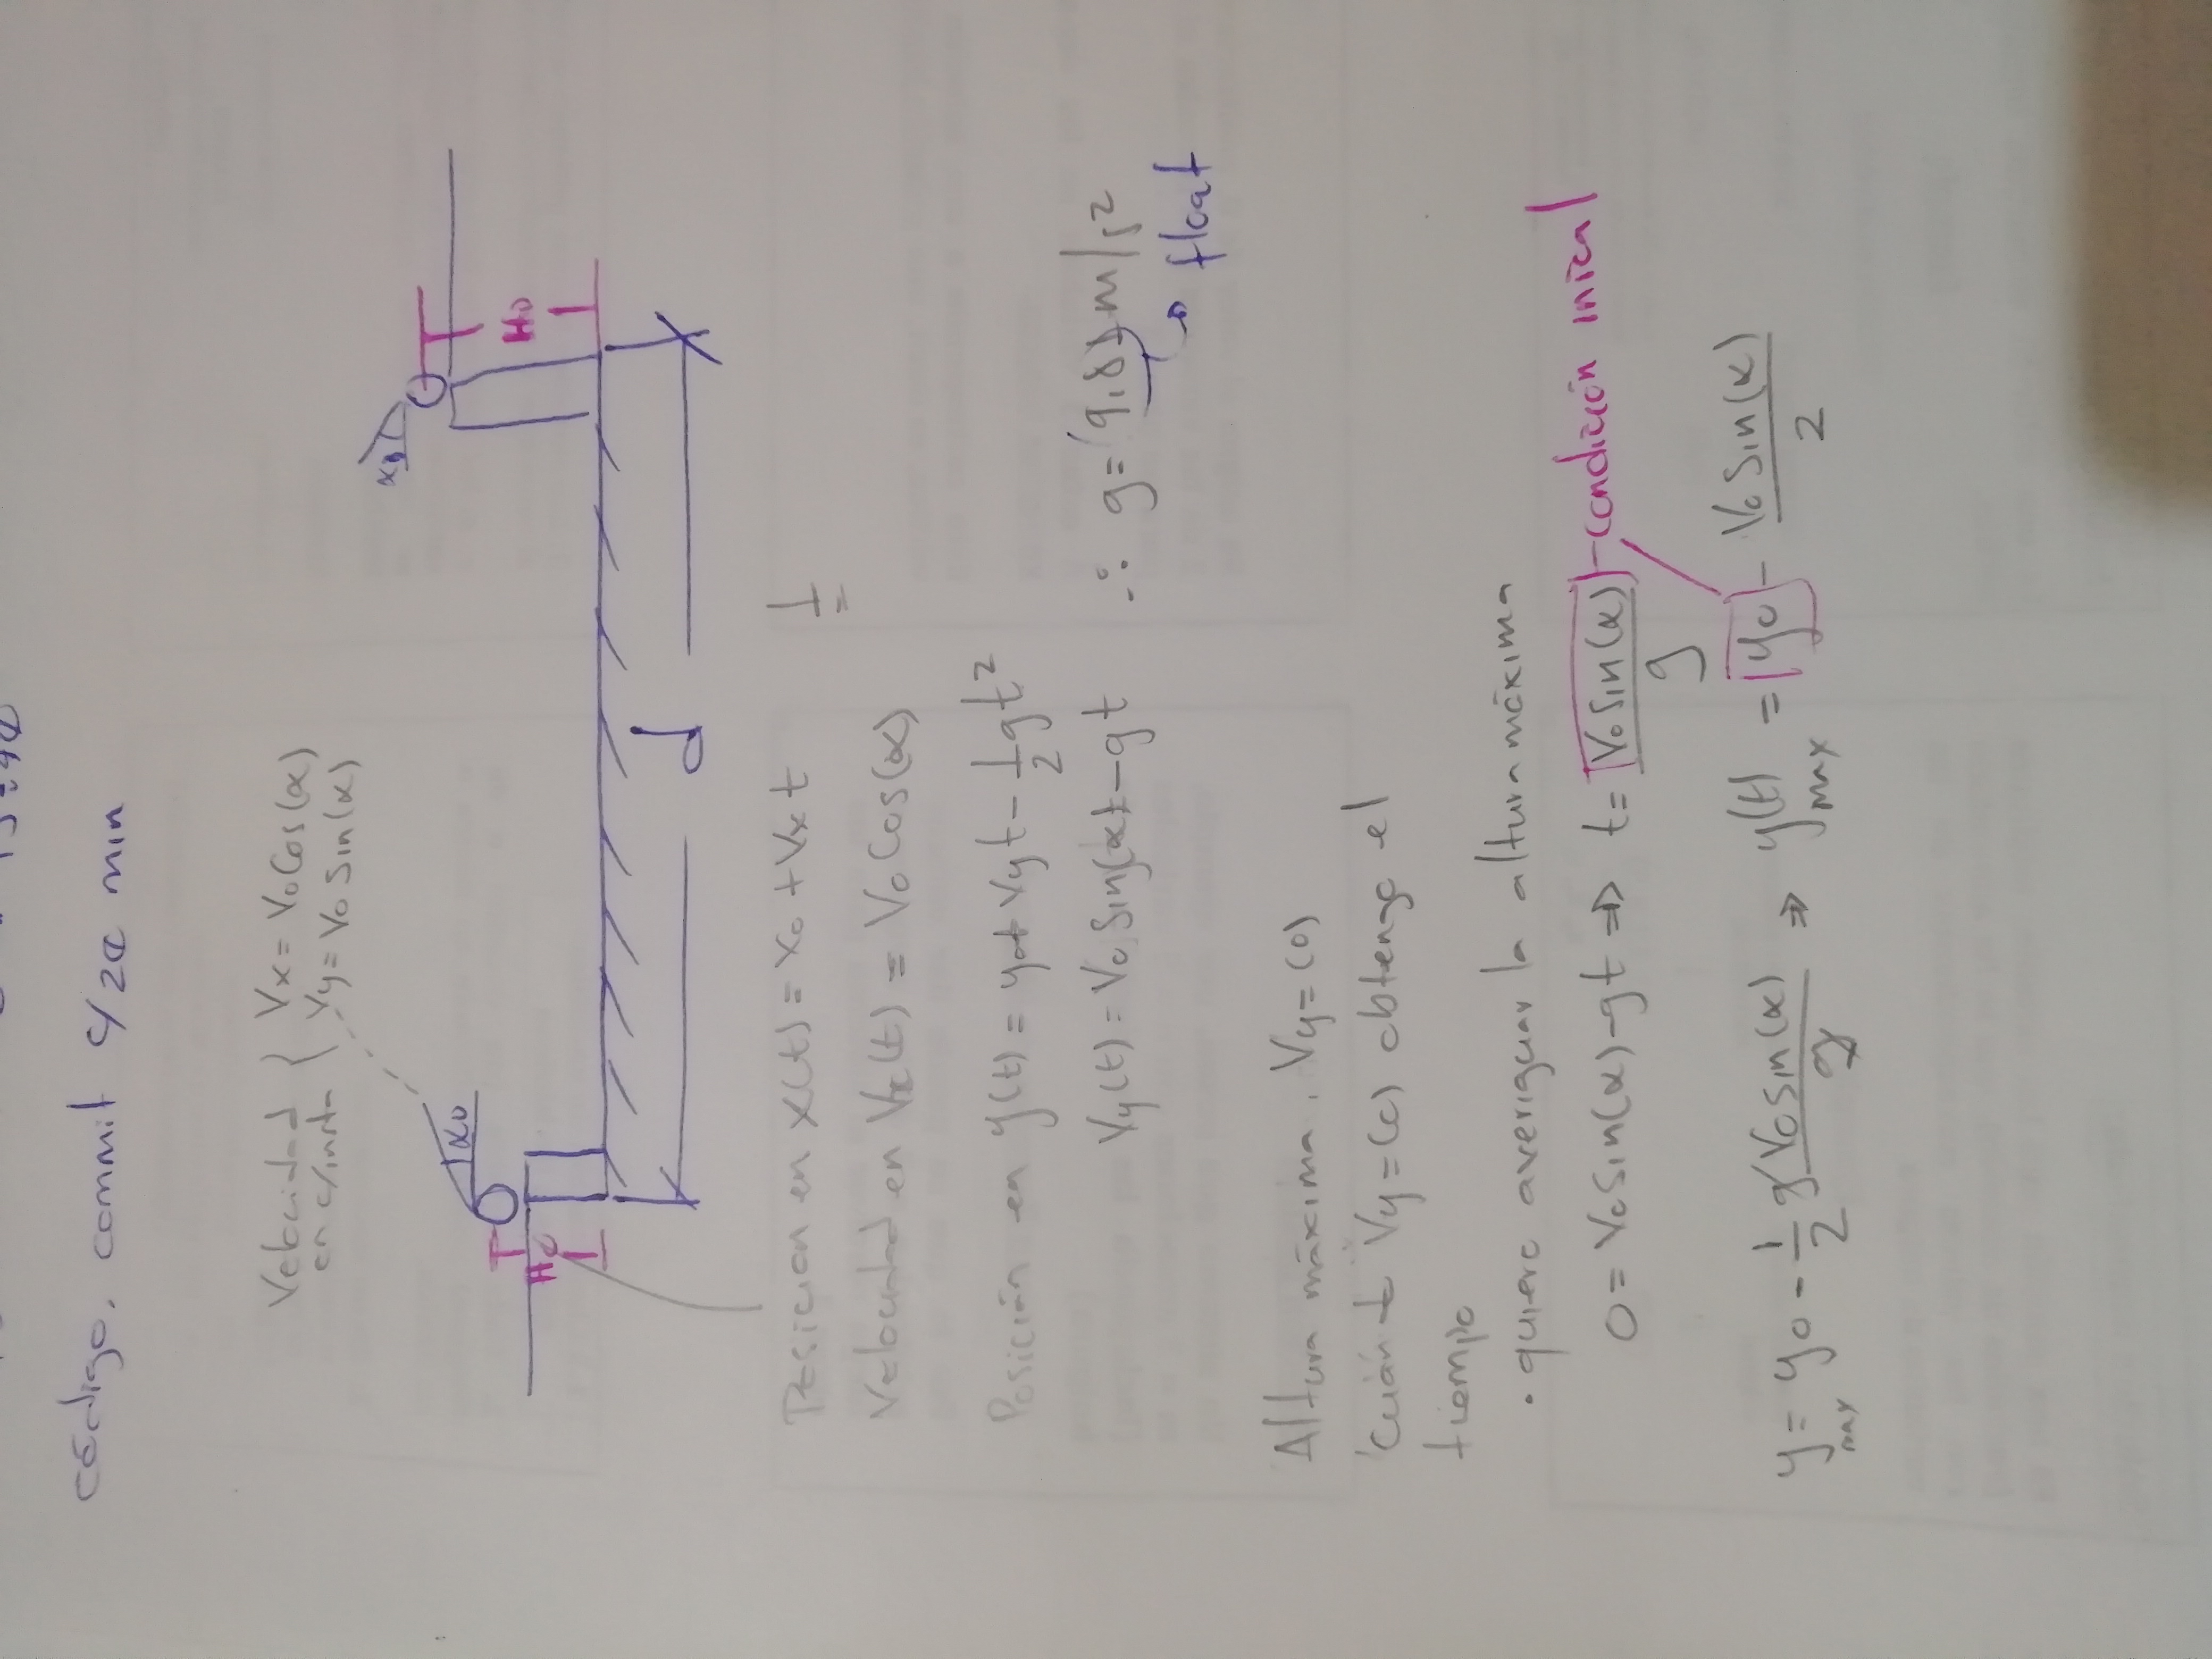 código, commit c/20 min
Velocidad en c/inst { Vx = V₀Cos(α)
Vy = V₀Sin(α)
α₀
H₀
αD
HD
d
Posición en X(t) = X₀ + Vx t
Velocidad en Vx(t) = V₀Cos(α)
Posición en y(t) = y₀ + Vyt - 1/2 gt²
Vy(t) = V₀Sin(α) - gt ∴ g = (9,8) m/s²
float
Altura máxima. Vy = (0)
Cuánt Vy = (0) obtengo el
tiempo
. quiero averiguar la altura máxima
0 = V₀Sin(α) - gt ⇒ t = V₀Sin(α)/g - condición inical
y max = y₀ - 1/2 g V₀Sin(α)/g ⇒ y(t) max = y₀ - V₀Sin(α)/2